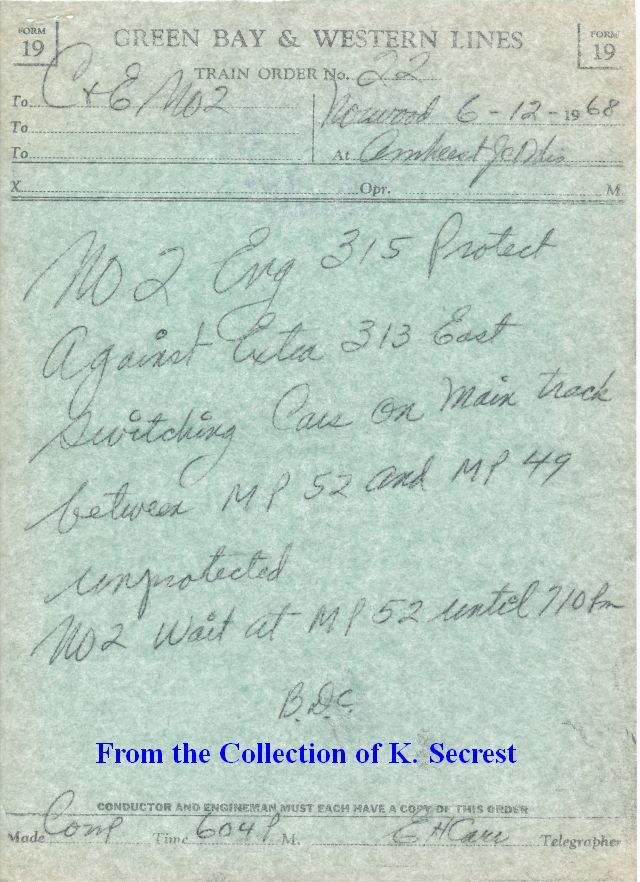 FORM 19
GREEN BAY & WESTERN LINES
FORM 19
TRAIN ORDER No. 22
To C & E No 2
Norwood 6-12-1968
To
To
At Amherst Jc Wis
X Opr. M
No 2 Eng 315 Protect
Against Extra 313 East
Switching Cars on Main track
between MP 52 and MP 49
unprotected
No 2 Wait at MP 52 until 710 Pm
B.D.C.
From the Collection of K. Secrest
CONDUCTOR AND ENGINEMAN MUST EACH HAVE A COPY OF THIS ORDER
Made Comp Time 604 P M. E H Carr Telegrapher